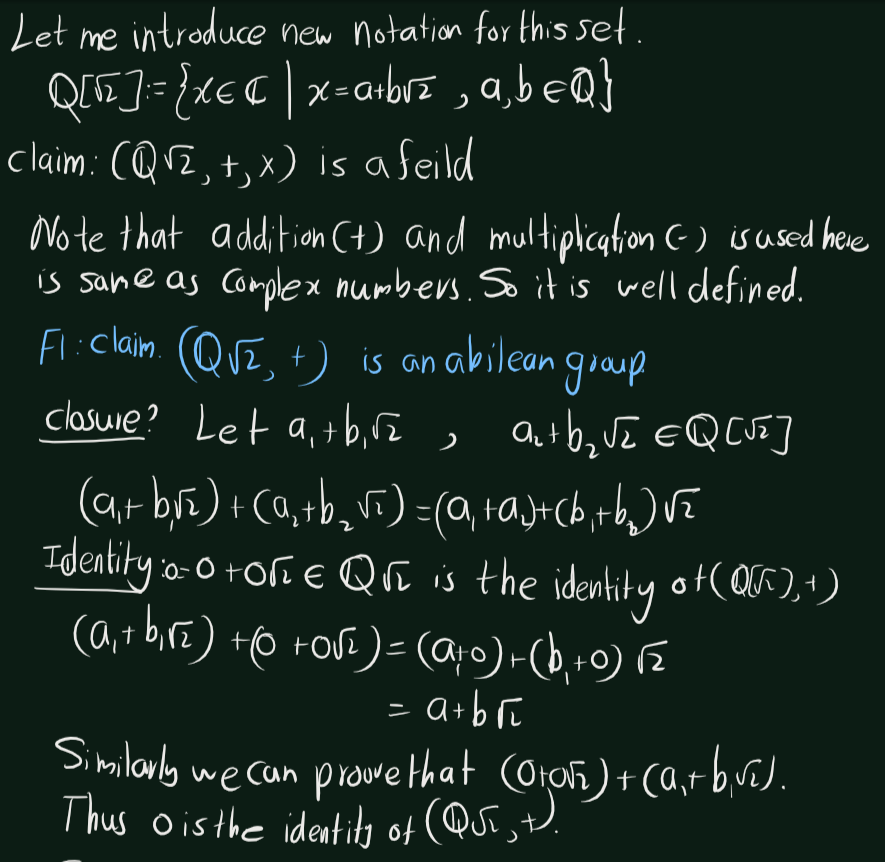 Let me introduce new notation for this set.
Q[√2]:={x∈ℂ | x=a+b√2 , a,b∈Q}
claim: (Q√2,+,×) is a feild
Note that addition(+) and multiplication (-) is used here
is same as complex numbers. So it is well defined.
F1: claim. (Q√2, +) is an abilean group
closure? Let a₁+b₁√2 , a₂+b₂√2 ∈Q[√2]
(a₁+b₁√2)+(a₂+b₂√2)=(a₁+a₂)+(b₁+b₂)√2
Identity:0=0+0√2∈Q√2 is the identity of(Q(√2),+)
(a₁+b₁√2)+(0+0√2)=(a₁+0)+(b₁+0)√2
= a+b√2
Similarly we can proove that (0+0√2)+(a₁+b₁√2).
Thus 0 is the identity of (Q√2,+).